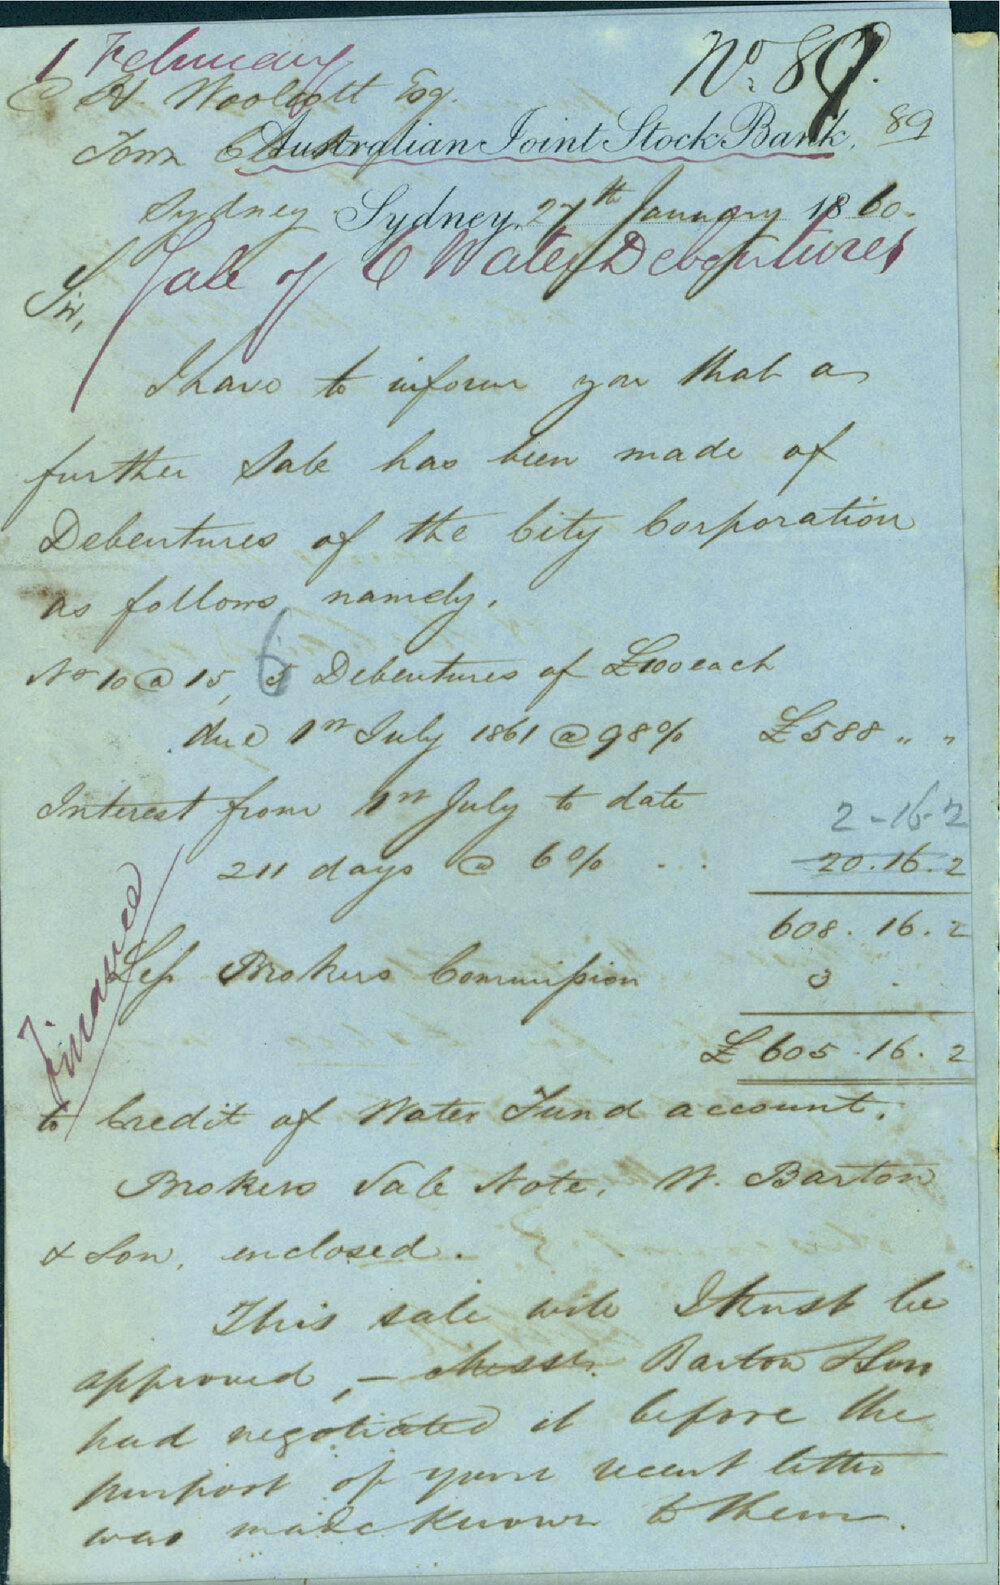 1 February
No. 89.
C H Woolcott Esq.
Australian Joint Stock Bank, 89
Town Clerk
Sydney Sydney, 27th January 1860.
Sale of C Water Debentures
Sir,
I have to inform you that a
further Sale has been made of
Debentures of the City Corporation
as follows namely.
No 10 @ 15, 6 Debentures of £100 each
due 1st July 1861 @ 98% £588 " "
Interest from 1st July to date
2-16-2
211 days @ 6% . . 20.16.2
608.16.2
Less Brokers Commission 3 .
Finance
£605.16.2
to Credit of Water Fund account.
Brokers Sale Note, W. Barton
& Son, enclosed.
This sale will I trust be
approved, – Messrs. Barton & Son
had negotiated it before the
purport of your recent letter
was made known to them.